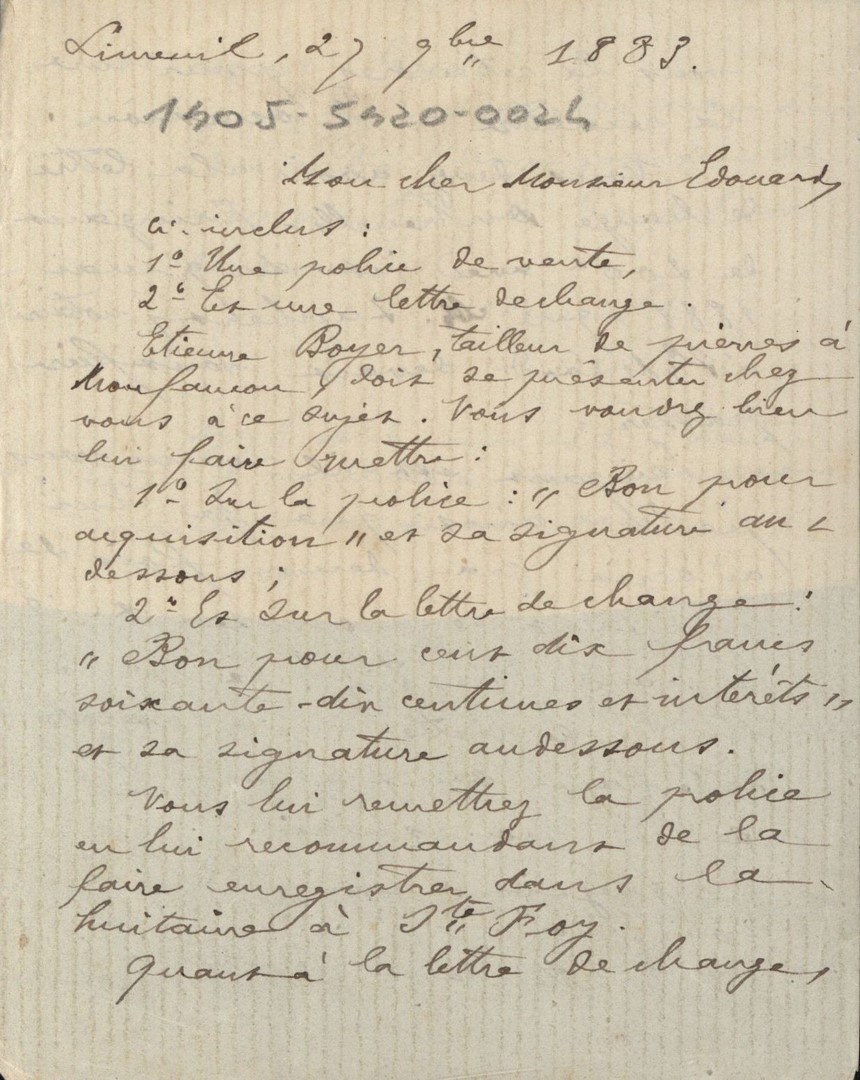 Limeuil, 27 9bre 1883.
1405-5420-0024
Mon cher Monsieur Edouard,
ci-inclus :
1º Une police de vente,
2º Et une lettre de change.
Etienne Boyer, tailleur de pierres à
Monfaucon, doit se présenter chez
vous à ce sujet. Vous voudrez bien
lui faire mettre :
1º Sur la police : " Bon pour
acquisition " et sa signature au-
dessous ;
2º Et sur la lettre de change :
" Bon pour cent dix francs
soixante-dix centimes et intérêts "
et sa signature audessous.
Vous lui remettrez la police
en lui recommandant de la
faire enregistrer dans la
huitaine à Ste Foy.
Quant à la lettre de change,